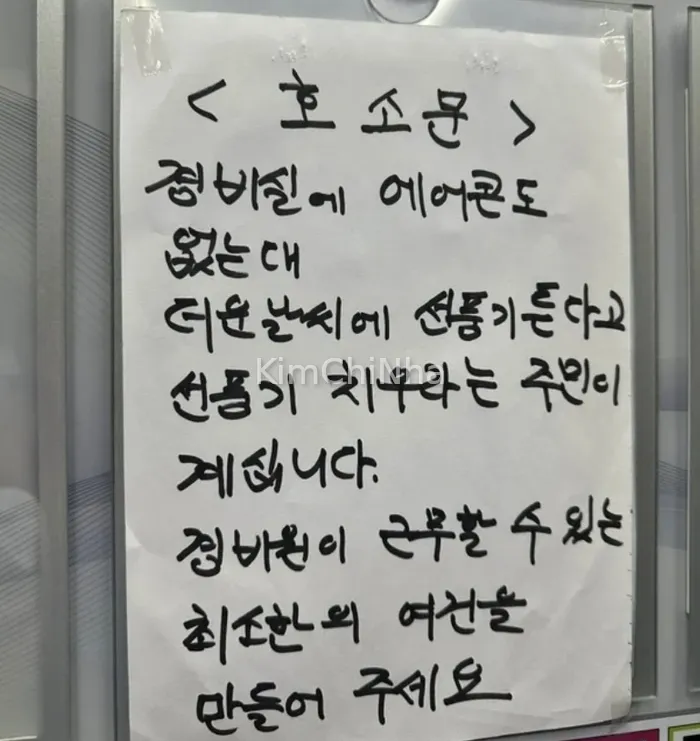 < 호소문 >
경비실에 에어콘도
없는대
더운날씨에 선풍기튼다고
선풍기 치우라는 주민이
계십니다.
경비원이 근무할 수 있는
최소한의 여건을
만들어 주세요
KimChiNha